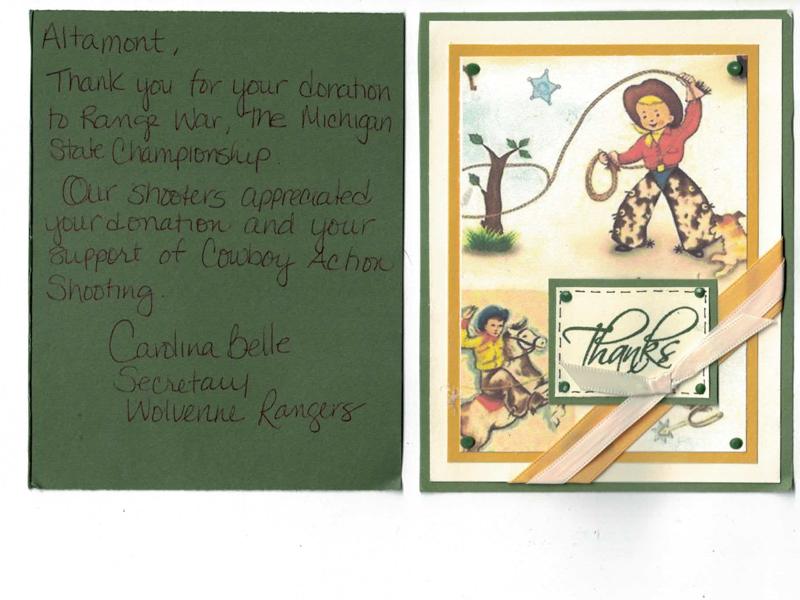 Altamont,
Thank you for your donation
to Range War, The Michigan
State Championship.
Our shooters appreciated
your donation and your
support of Cowboy Action
Shooting.
Carolina Belle
Secretary
Wolverine Rangers
Thanks